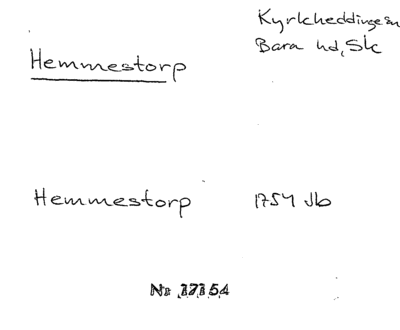 Kyrkheddinge sn
Bara hd, Sk
Hemmestorp
Hemmestorp 1754 Jb